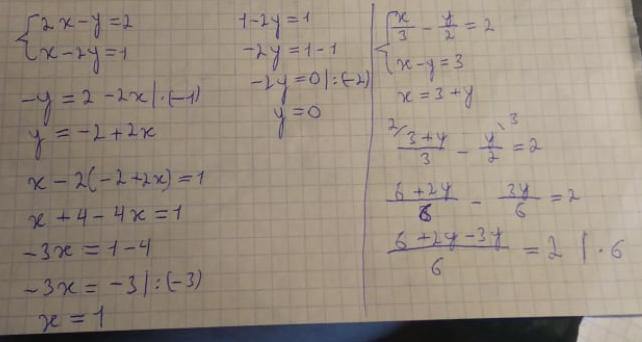 {2x-y=2
{x-2y=1
-y=2-2x|·(-1)
y=-2+2x
x-2(-2+2x)=1
x+4-4x=1
-3x=1-4
-3x=-3|:(-3)
x=1
1-2y=1
-2y=1-1
-2y=0|:(-2)
y=0
{x/3 - y/2 = 2
{x-y=3
x=3+y
2/ 3+y/3 - y/2 \3 = 2
6+2y/6 - 3y/6 = 2
6+2y-3y/6 = 2 | · 6